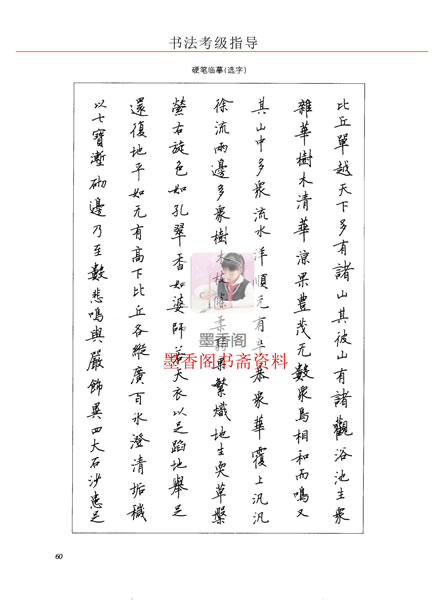 书法考级指导
硬笔临摹(选字)
比丘單越天下多有諸山其彼山有諸觀浴池生衆
雜華樹木清華涼果豊茂无數衆鳥相和而鳴又
其山中多衆流水洋順无有卒暴衆華覆上汎汎
徐流兩邊多衆樹木枝條柔弱果繁熾地生耎草槃
縈右旋色如孔翠香如婆師若天衣以足蹈地舉足
還復地平如无有高下比丘各縱廣百水澄清垢穢
以七寶塹砌邊乃至數悲鳴與嚴飾異四大石沙恚足
墨香阁
墨香阁书斋资料
60